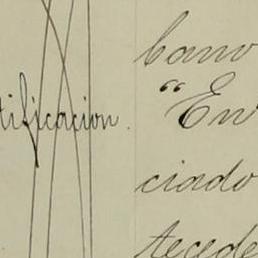 tificacion.
bano
"En
ciado
tecede